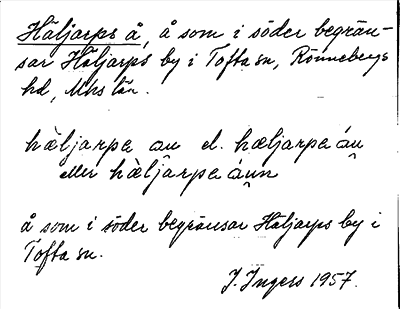 Häljarps å, å som i söder begrän-
sar Häljarps by i Tofta sn, Rönnebergs
hd, Mhs län.
hæ̀ljarpa au el. hæljarpa áu
eller hæ̀ljarpa áun
å som i söder begränsar Häljarps by i
Tofta sn.
J. Ingers 1957.